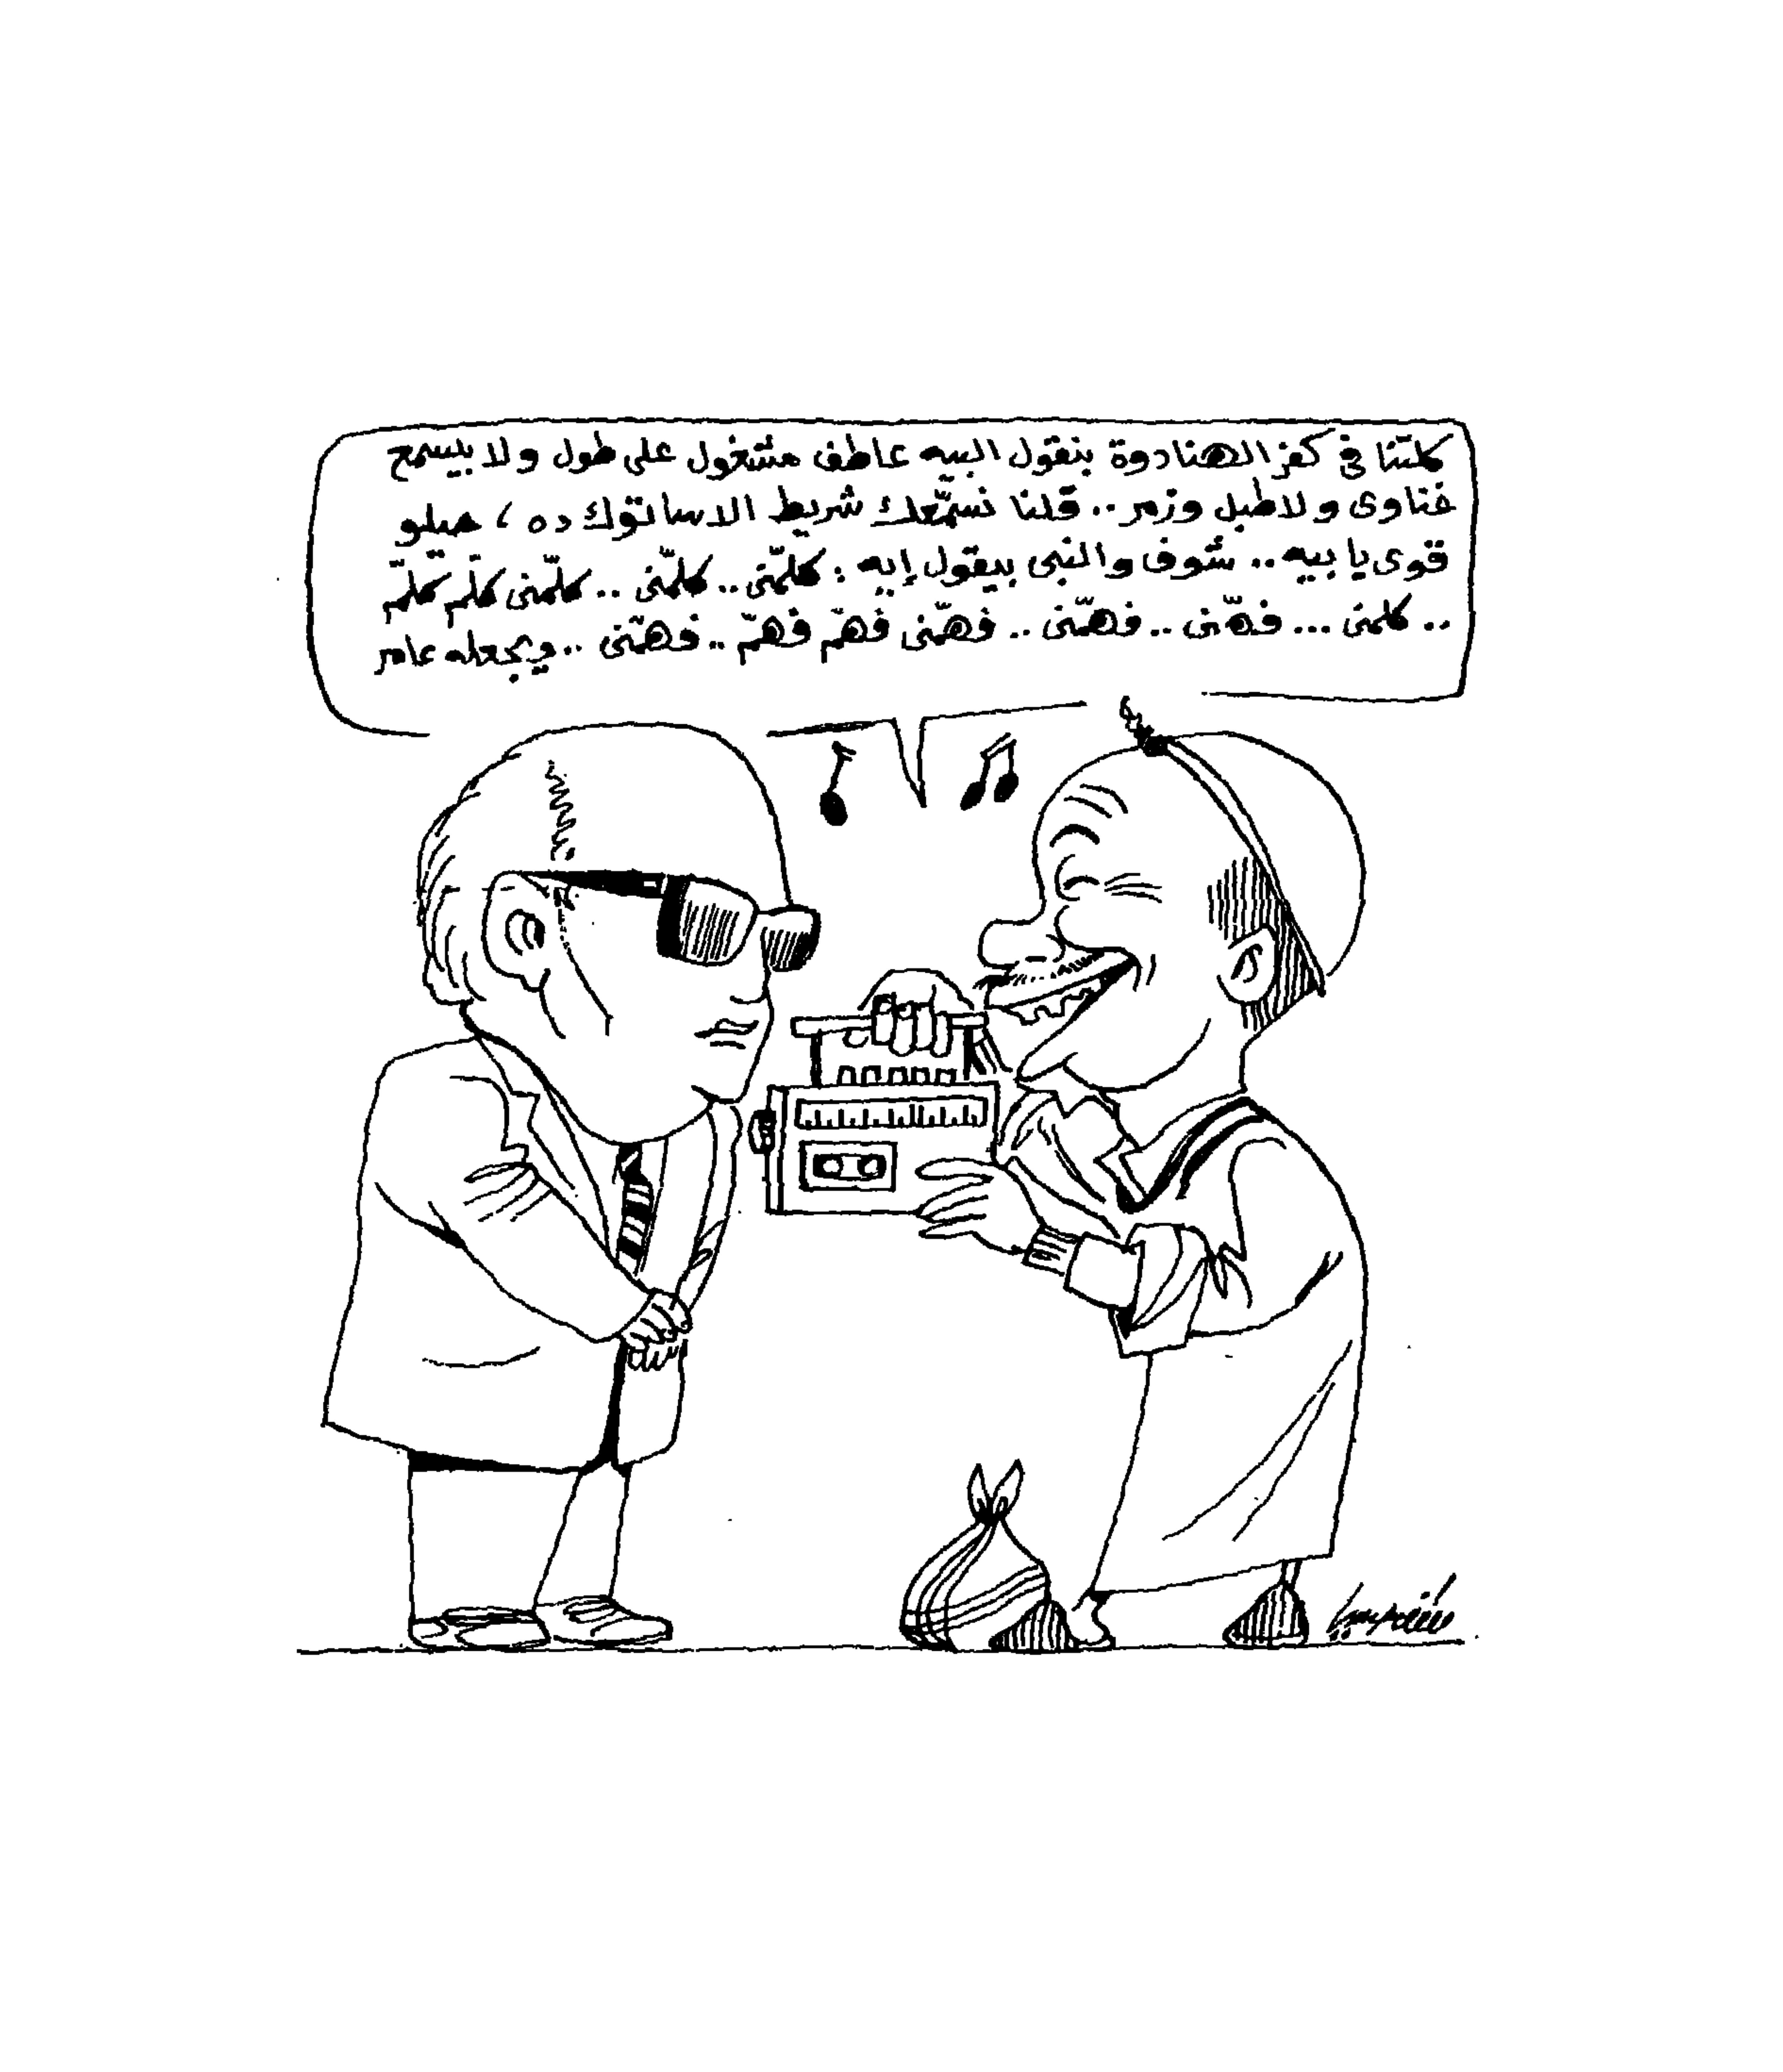 كلتنا في كفر الهنادوة بنقول البيه عاطف مشغول على طول ولا بيسمع
غناوى ولا طبل وزمر .. قلنا نسمّعك شريط الاساتوك ده ، حيلو
قوى يا بيه .. شوف والنبى بيقول إيه : كلّمنى .. كلّمنى .. كلّمنى كلّم كلّم
.. كلمنى ... فهّمنى .. فهّمنى .. فهّمنى فهّم فهّم .. فهّمنى .. ويجعله عامر